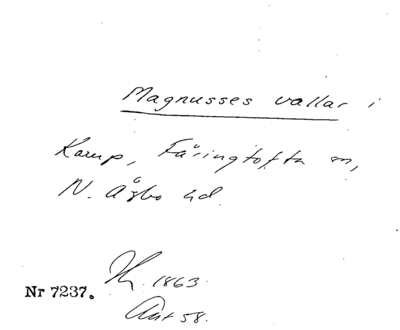 Magnusses vallar i
Karup, Färingtofta sn,
N. Åsbo hd.
1863
Nr 7237.
Ant 58.